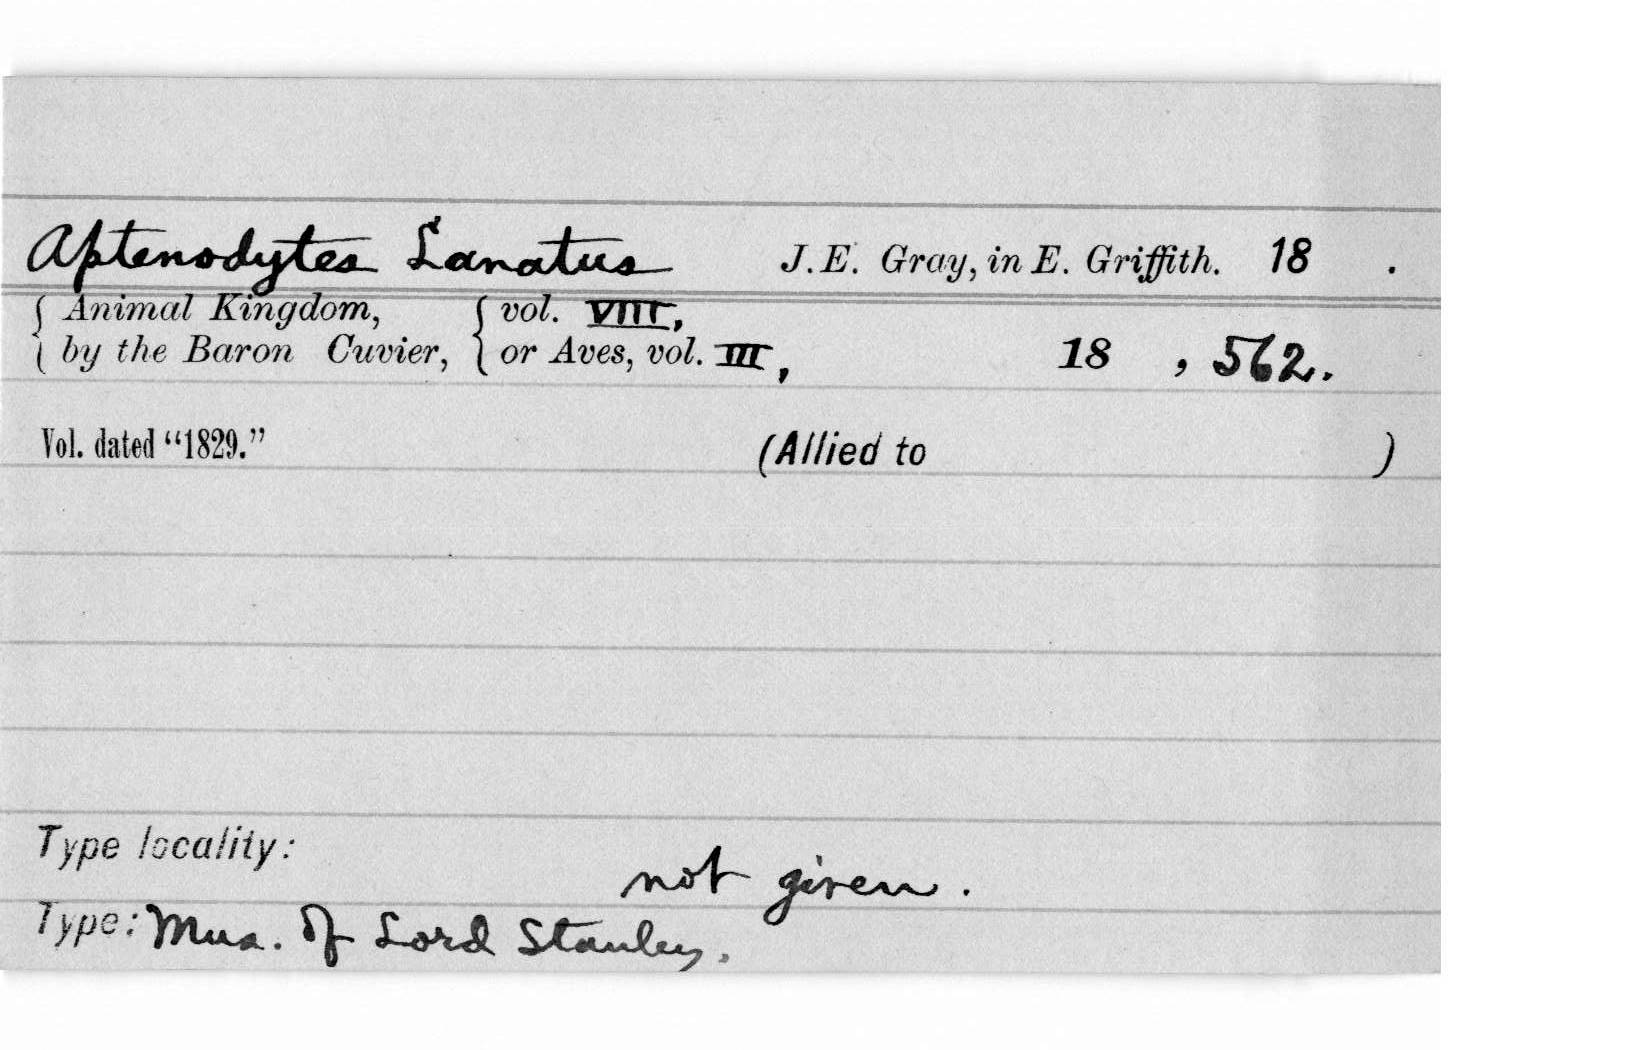 Aptenodytes Lanatus J. E. Gray, in E. Griffith. 18 .
{ Animal Kingdom, { vol. VIII,
{ by the Baron Cuvier, { or Aves, vol. III, 18 , 562.
Vol. dated "1829." (Allied to )
Type locality:
not given.
Type: Mus. of Lord Stanley.